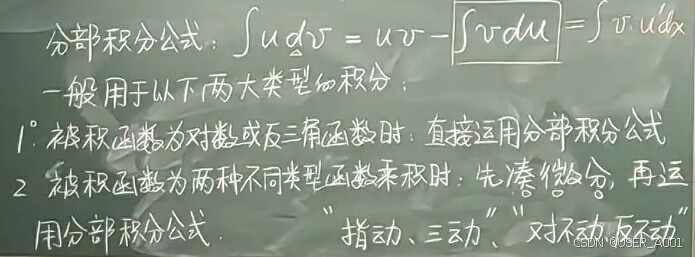 分部积分公式: ∫udv = uv - ∫vdu = ∫v·u'dx
一般用于以下两大类型的积分:
1° 被积函数为对数或反三角函数时: 直接运用分部积分公式
2 被积函数为两种不同类型函数乘积时: 先凑微分, 再运
用分部积分公式. "指动、三动"、"对不动,反不动"
CSDN @USER_A001